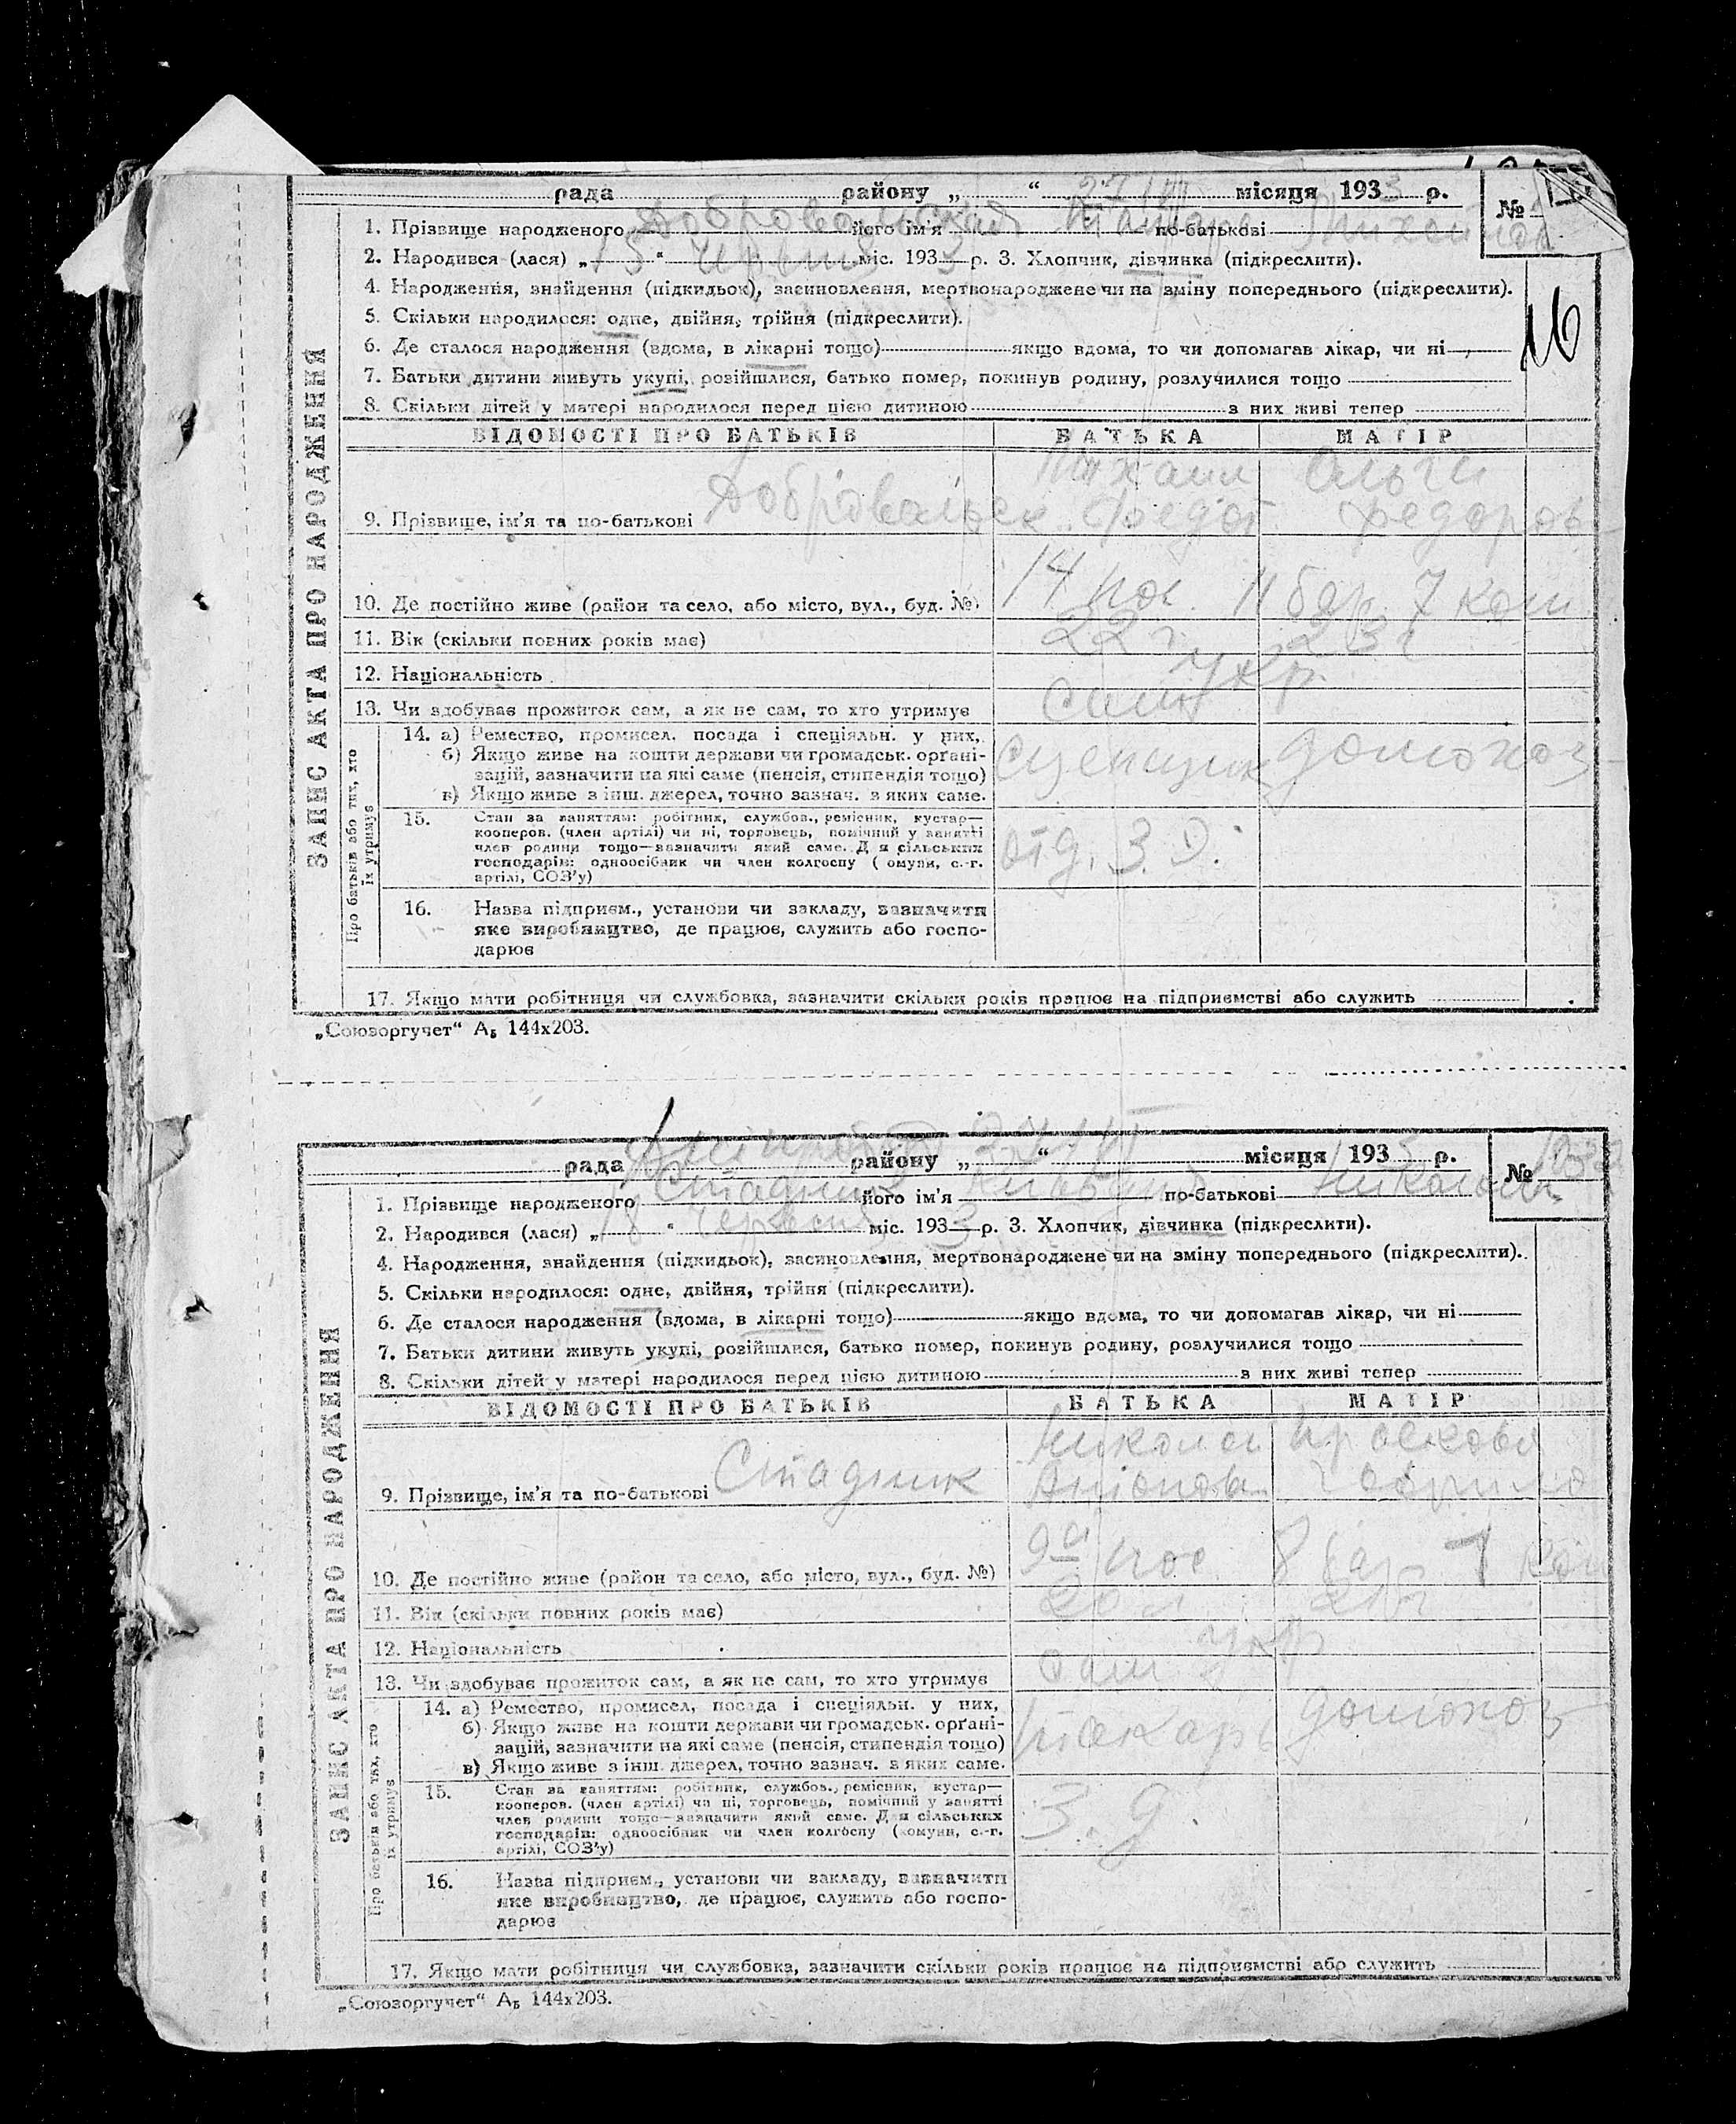 рада району „ “ 27/VII місяця 1933 р. №
1. Прізвище народженого Добровольская його ім'я Тамара по-батькові
2. Народився (лася) „15“ червня міс. 1933 р. 3. Хлопчик, дівчинка (підкреслити).
4. Народження, знайдення (підкидьок), засиновлення, мертвонароджене чи на зміну попереднього (підкреслити).
5. Скільки народилося: одне, двійня, трійня (підкреслити).
16
6. Де сталося народження (вдома, в лікарні тощо) якщо вдома, то чи допомагав лікар, чи ні
7. Батьки дитини живуть укупі, розійшлися, батько помер, покинув родину, розлучилися тощо
8. Скільки дітей у матері народилося перед цією дитиною з них живі тепер
ЗАПИС АКТА ПРО НАРОДЖЕННЯ
ВІДОМОСТІ ПРО БАТЬКІВ БАТЬКА МАТІР
Михаил Ольги
9. Прізвище, ім'я та по-батькові Добровольск Федот Федоров
10. Де постійно живе (район та село, або місто, вул., буд. №) 14 пос. 11 бар. 7 ком
11. Вік (скільки повних років має) 22 г 23 г
12. Національність укр.
13. Чи здобуває прожиток сам, а як не сам, то хто утримує сам
Про батьків або тих, хто їх утримує
14. а) Ремество, промисел. посада і спеціяльн. у них,
б) Якщо живе на кошти держави чи громадськ. орґані-
зацій, зазначити на які саме (пенсія, стипендія тощо) сцепщик домохоз
в) Якщо живе з інш. джерел, точно зазнач. з яких саме.
15. Стан за заняттям: робітник, службов., ремісник, кустар—
кооперов. (член артілі) чи ні, торговець, помічний у занятті
член родини тощо—зазначити який саме. Для сільських
господарів: одноосібник чи член колгоспу (комуни, с.-г.
артілі, СОЗ'у) отд. З. Д.
16. Назва підприєм., установи чи закладу, зазначити
яке виробництво, де працює, служить або госпо-
дарює
17. Якщо мати робітниця чи службовка, зазначити скільки років працює на підприємстві або служить
„Союзоргучет“ А₅ 144х203.
рада району „ “ 27/VII місяця 1933 р. №
1. Прізвище народженого Стадник його ім'я по-батькові Николаев
2. Народився (лася) „18“ червня міс. 1933 р. 3. Хлопчик, дівчинка (підкреслити).
4. Народження, знайдення (підкидьок), засиновлення, мертвонароджене чи на зміну попереднього (підкреслити).
5. Скільки народилося: одне, двійня, трійня (підкреслити).
6. Де сталося народження (вдома, в лікарні тощо) якщо вдома, то чи допомагав лікар, чи ні
7. Батьки дитини живуть укупі, розійшлися, батько помер, покинув родину, розлучилися тощо
8. Скільки дітей у матері народилося перед цією дитиною з них живі тепер
ЗАПИС АКТА ПРО НАРОДЖЕННЯ
ВІДОМОСТІ ПРО БАТЬКІВ БАТЬКА МАТІР
Николай Прасковя
9. Прізвище, ім'я та по-батькові Стадник Антонов Гаврило
10. Де постійно живе (район та село, або місто, вул., буд. №) 9а пос 8 бар 7 ком
11. Вік (скільки повних років має) 20 л 21 г
12. Національність укр
13. Чи здобуває прожиток сам, а як не сам, то хто утримує сам
Про батьків або тих, хто їх утримує
14. а) Ремество, промисел, посада і спеціяльн. у них,
б) Якщо живе на кошти держави чи громадськ. орґані-
зацій, зазначити на які саме (пенсія, стипендія тощо) токарь домохоз
в) Якщо живе з інш. джерел, точно зазнач. з яких саме.
15. Стан за заняттям: робітник, службов., ремісник, кустар—
кооперов. (член артілі) чи ні, торговець, помічний у занятті
член родини тощо—зазначити який саме. Для сільських
господарів: одноосібник чи член колгоспу (комуни, с.-г.
артілі, СОЗ'у) З. д.
16. Назва підприєм., установи чи закладу, зазначити
яке виробництво, де працює, служить або госпо-
дарює
17. Якщо мати робітниця чи службовка, зазначити скільки років працює на підприємстві або служить
„Союзоргучет“ А₅ 144х203.